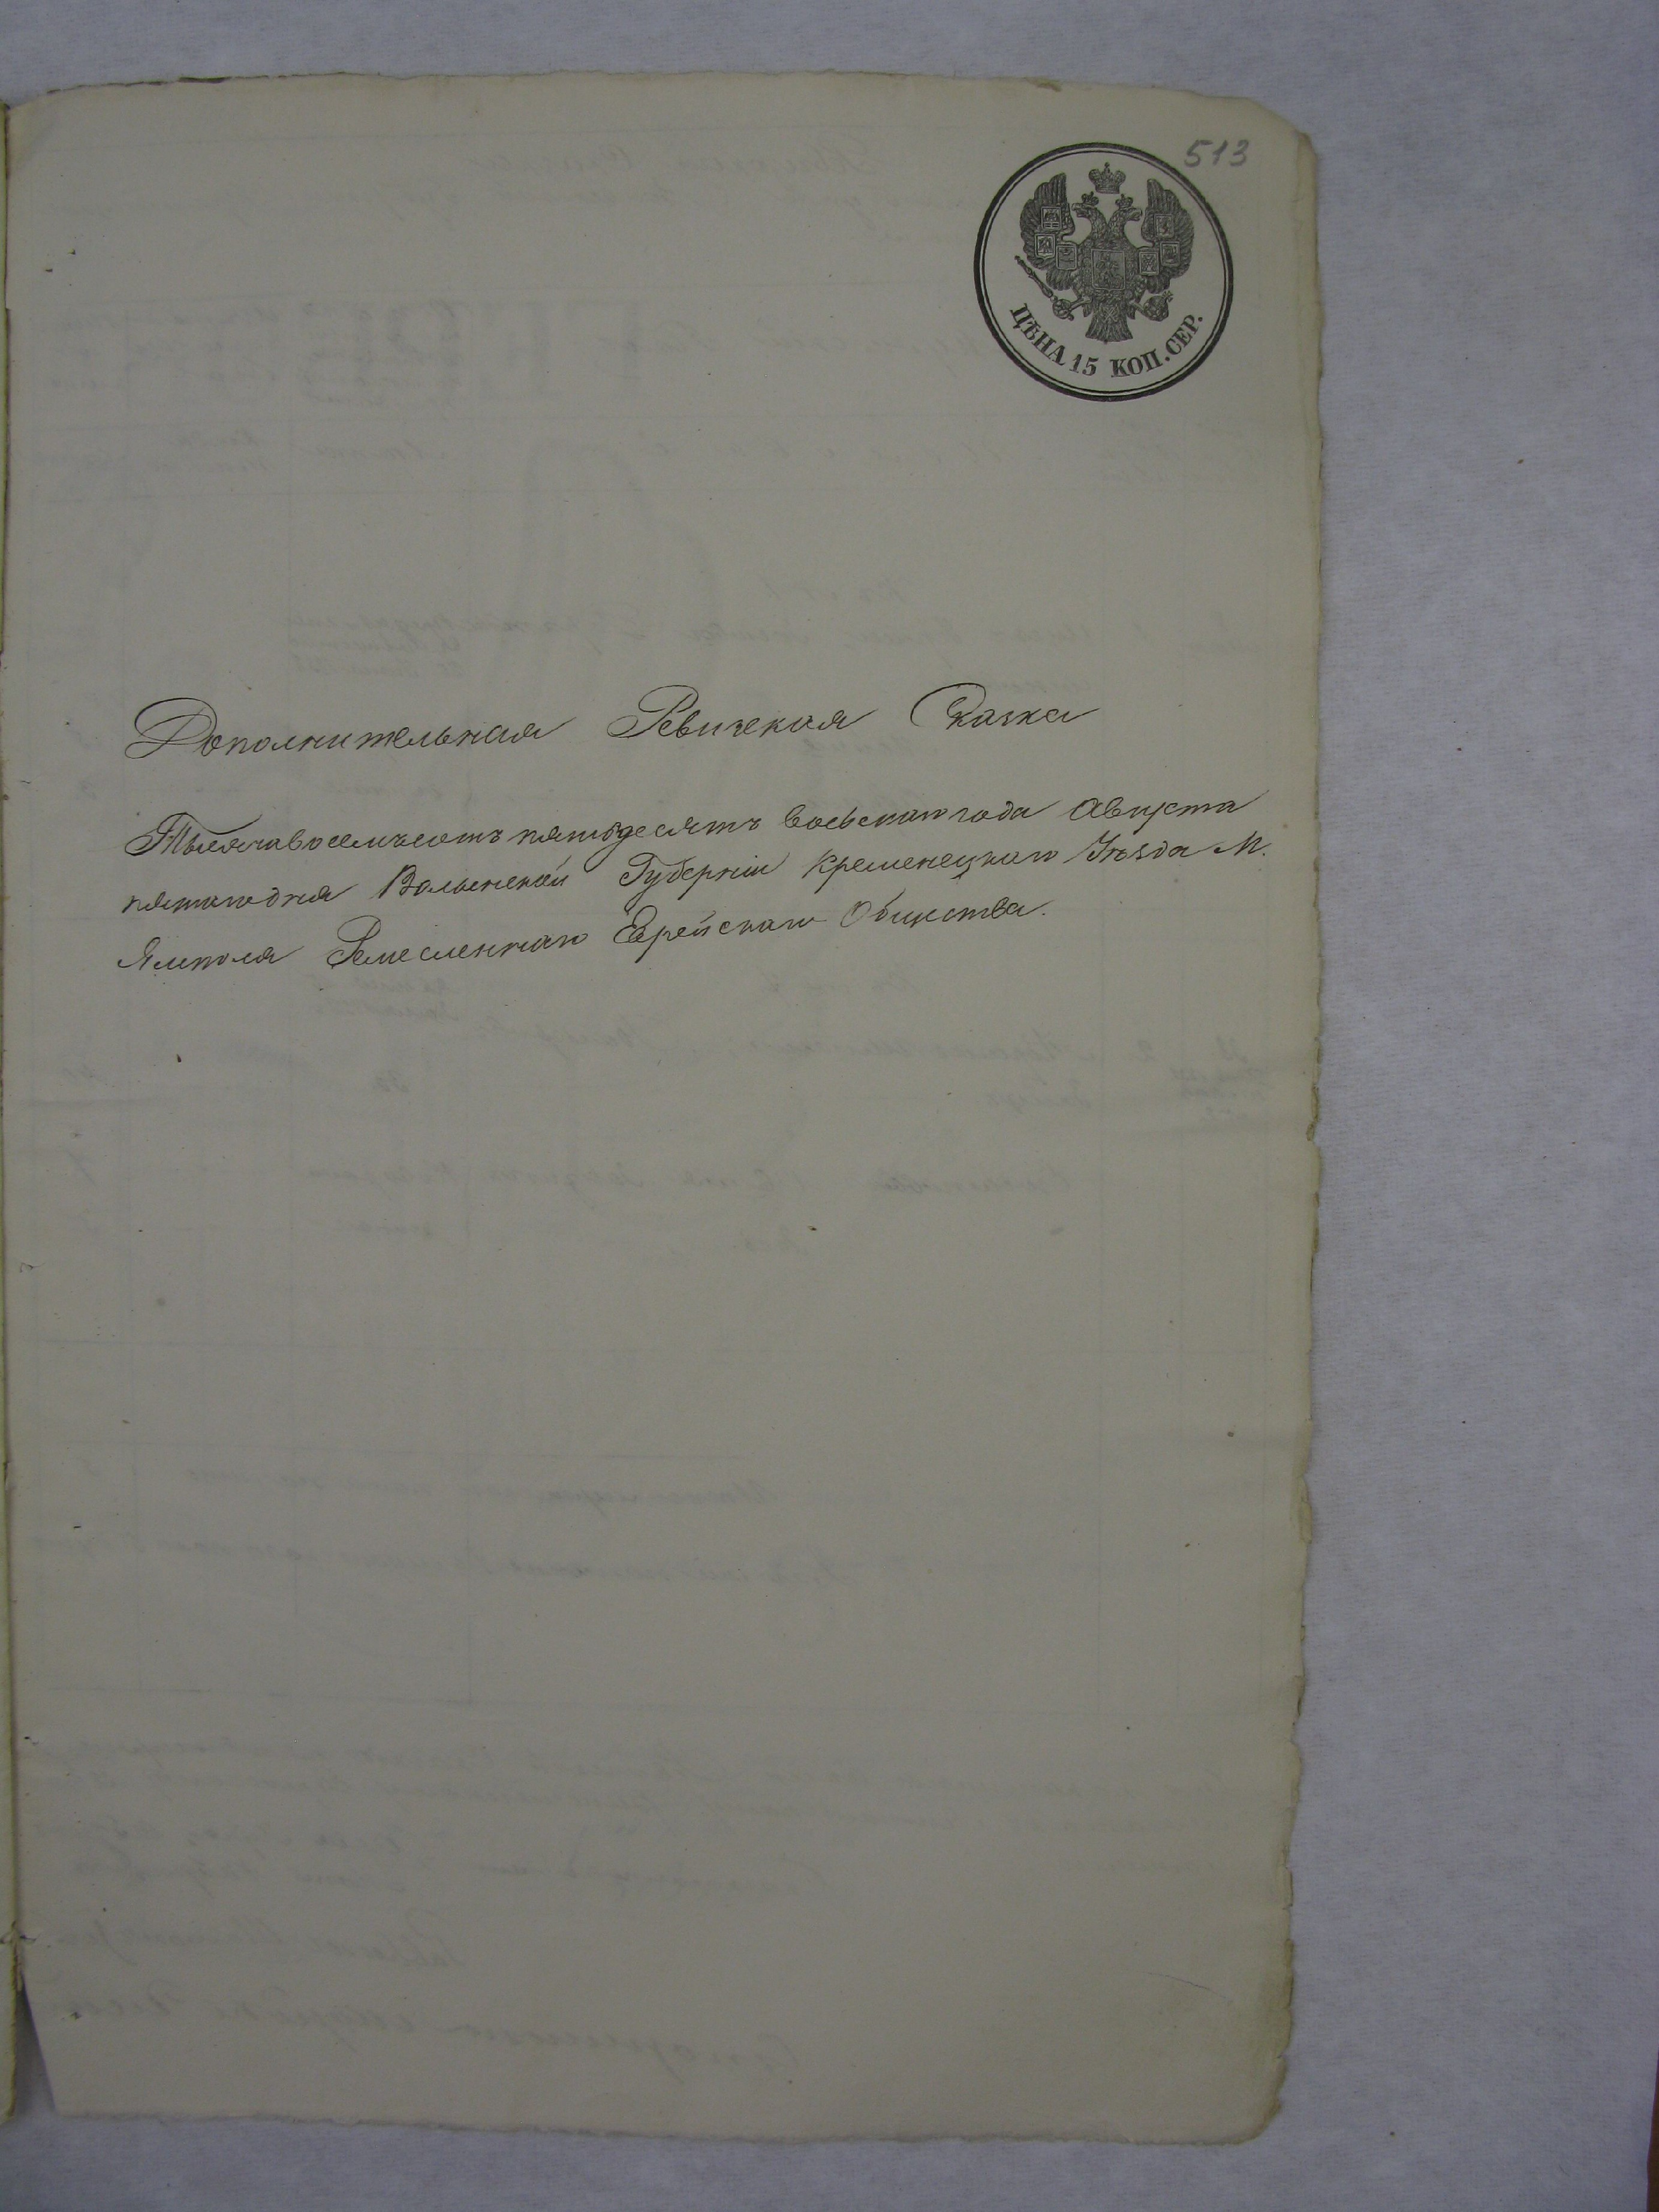 513
ЦѢНА 15 КОП. СЕР.
Дополнительная Ревизская Сказка
Тысяча восемьсотъ пятдесятъ восьмаго года Августа
пятаго дня Волынской Губерніи Кременецкаго Уѣзда М.
Ямполя Ремесленнаго Еврейскаго Общества.